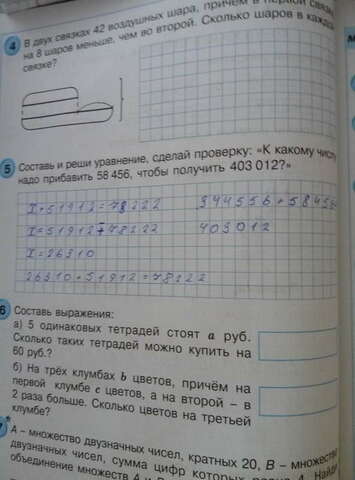 4 В двух связках 42 воздушных шара, причём в первой связке
на 8 шаров меньше, чем во второй. Сколько шаров в каждой
связке?
5 Составь и реши уравнение, сделай проверку: «К какому числу
надо прибавить 58 456, чтобы получить 403 012?»
X+51912=78222
344556+58456
X=51912-78222
403012
X=26310
26310+51912=78222
6 Составь выражения:
а) 5 одинаковых тетрадей стоят a руб.
Сколько таких тетрадей можно купить на
60 руб.?
б) На трёх клумбах b цветов, причём на
первой клумбе c цветов, а на второй – в
2 раза больше. Сколько цветов на третьей
клумбе?
7* A – множество двузначных чисел, кратных 20, B – множество
двузначных чисел, сумма цифр которых равна 4. Найди
объединение множеств A и